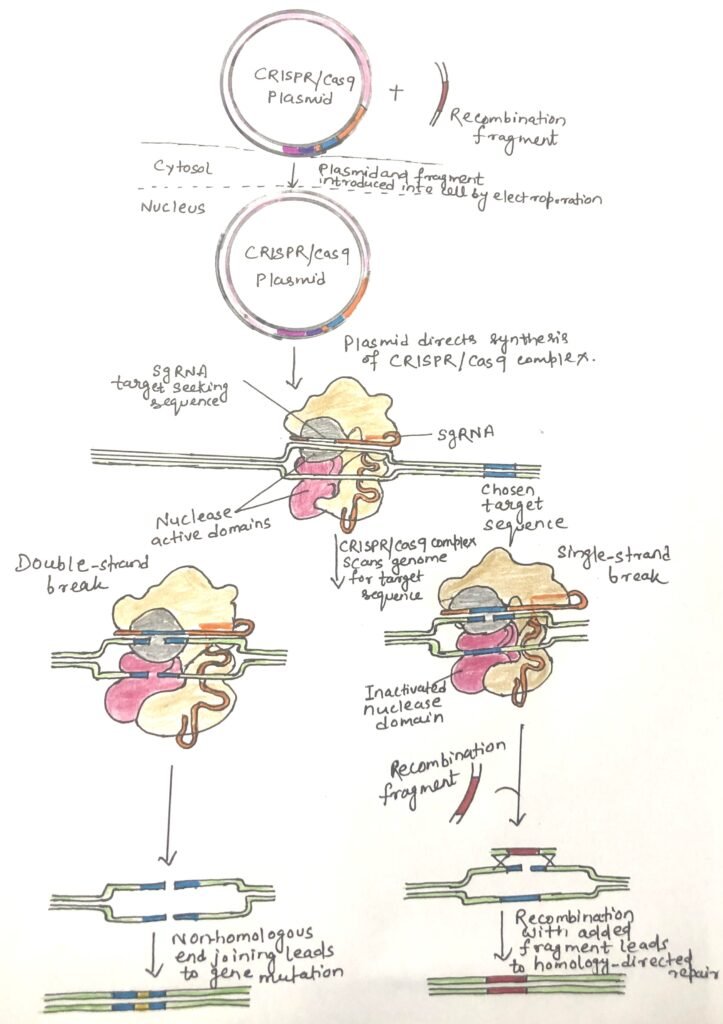 CRISPR/Cas9
Plasmid
+
Recombination
fragment
Cytosol
Plasmid and fragment
introduced into cell by electroporation
Nucleus
CRISPR/Cas9
Plasmid
Plasmid directs synthesis
of CRISPR/Cas9 complex.
SgRNA
target seeking
sequence
SgRNA
Chosen
target
sequence
Nuclease
active domains
CRISPR/Cas9 complex
scans genome
for target
sequence
Double-strand
break
Single-strand
break
Inactivated
nuclease
domain
Recombination
fragment
Non-homologous
end joining leads
to gene mutation
Recombination
with added
fragment leads
to homology-directed
repair